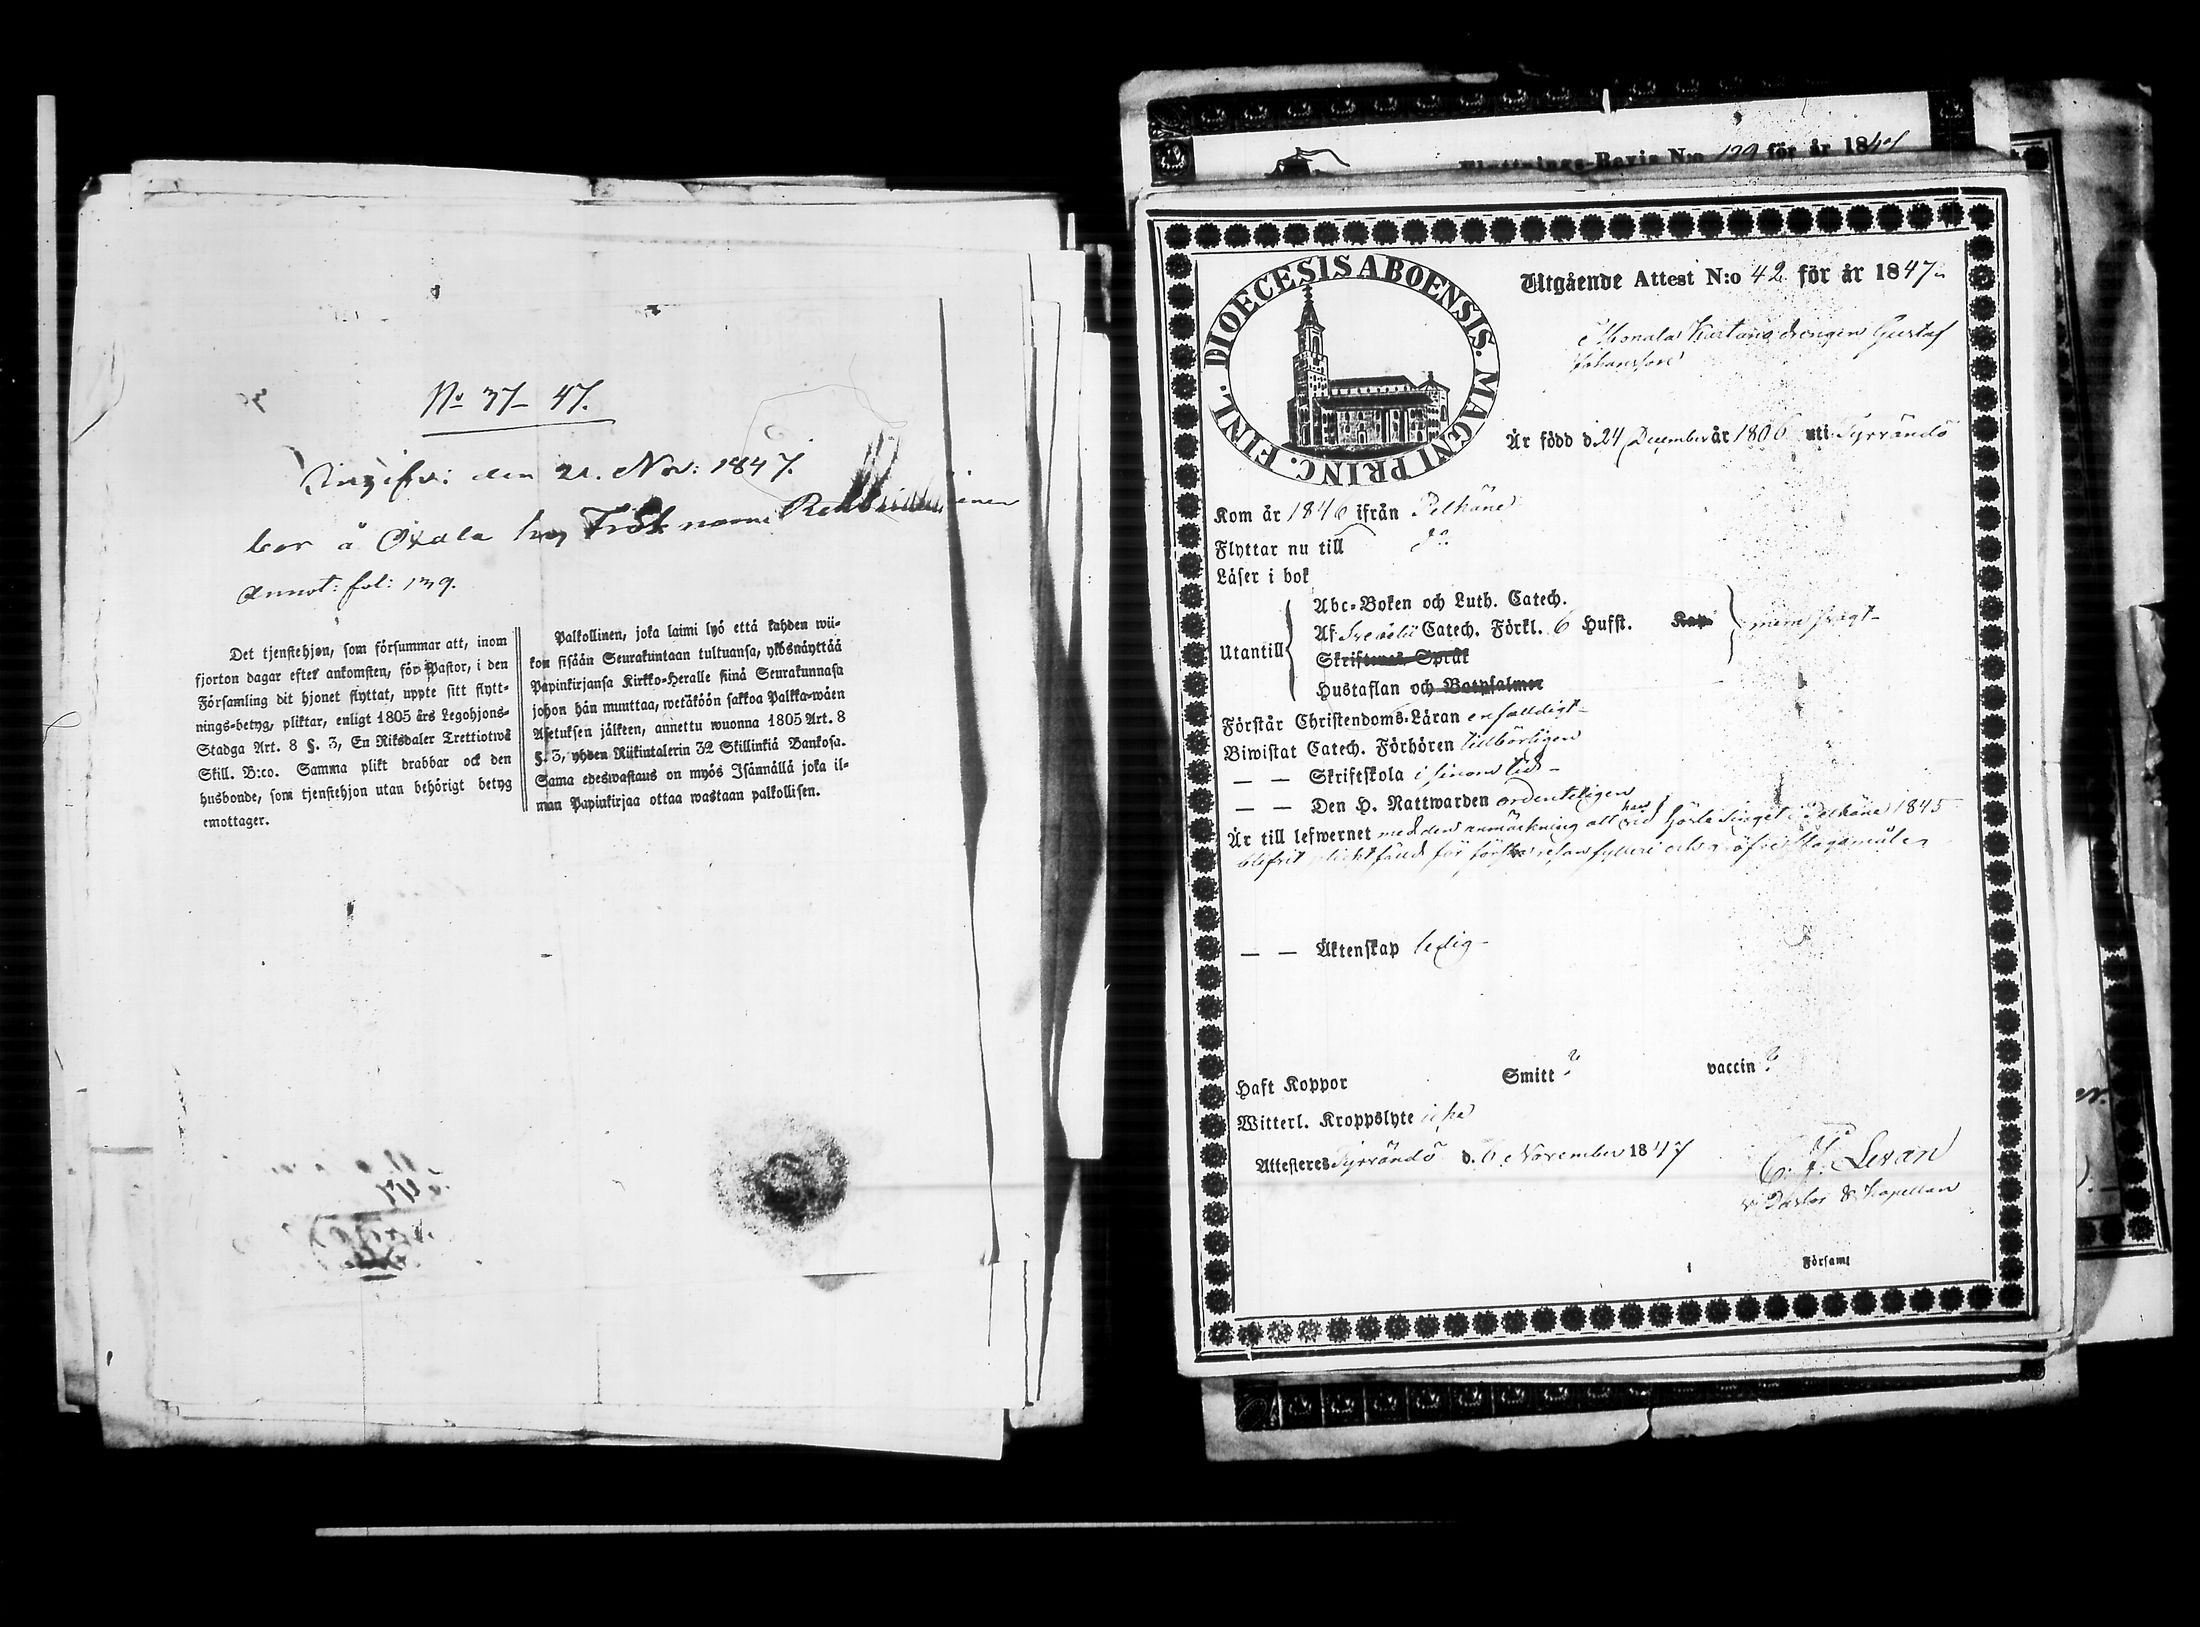 No 37- 47.
Ingifv: den 21. Nov: 1847.
bor å Oxala hos
Annot: fol: 139.
Det tjenstehjon, som försummar att, inom
fjorton dagar efter ankomsten, för Pastor, i den
Församling dit hjonet flyttat, uppte sitt flytt-
nings-betyg, pliktar, enligt 1805 års Legohjons-
Stadga Art. 8 §. 3, En Riksdaler Trettiotwå
Skill. B:co. Samma plikt drabbar ock den
husbonde, som tjenstehjon utan behörigt betyg
emottager.
Palkollinen, joka laimi lyö että kahden wii-
kon sisään Seurakuntaan tultuansa, ylösnäyttää
Papinkirjansa Kirkko-Heralle siinä Seurakunnasa
johon hän muuttaa, wetäköön sakkoa Palkka-wäen
Asetuksen jälkeen, annettu wuonna 1805 Art. 8
§. 3, yhden Riikintalerin 32 Skillinkiä Bankosa.
Sama edeswastaus on myös Isännällä joka il-
man Papinkirjaa ottaa wastaan palkollisen.
Flyttnings-Bevis N:o 129 för år 184
DIOECESIS ABOENSIS. MAGNI PRINC. FINL.
Utgående Attest N:o 42 för år 1847
drengen Gustaf
Johansson
Är född d. 24 December år 1806 uti Tyrvändö
Kom år 1846 ifrån Pelkäne
Flyttar nu till do
Läser i bok
Utantill
Abc-Boken och Luth. Catech.
Af Svebelii Catech. Förkl. 6 Hufst. Kap
Skriftenes Språk
Hustaflan och Botpsalmer
Förstår Christendoms-Läran enfaldigt
Biwistat Catech. Förhören tillbörligen
— — Skriftskola i sinom tid
— — Den H. Nattwarden ordenteligen
Är till lefwernet med den anmärkning att han vid Höste Tinget i Pelkäne 1845
blifvit pliktfälld för första resan fylleri och
— — Äktenskap ledig
Haft Koppor Smitt ? vaccin ?
Witterl. Kroppslyte icke
Attesteres Tyrvändö d. 6 November 1847
C. F. Levan
v. Pastor & Kapellan
Församl